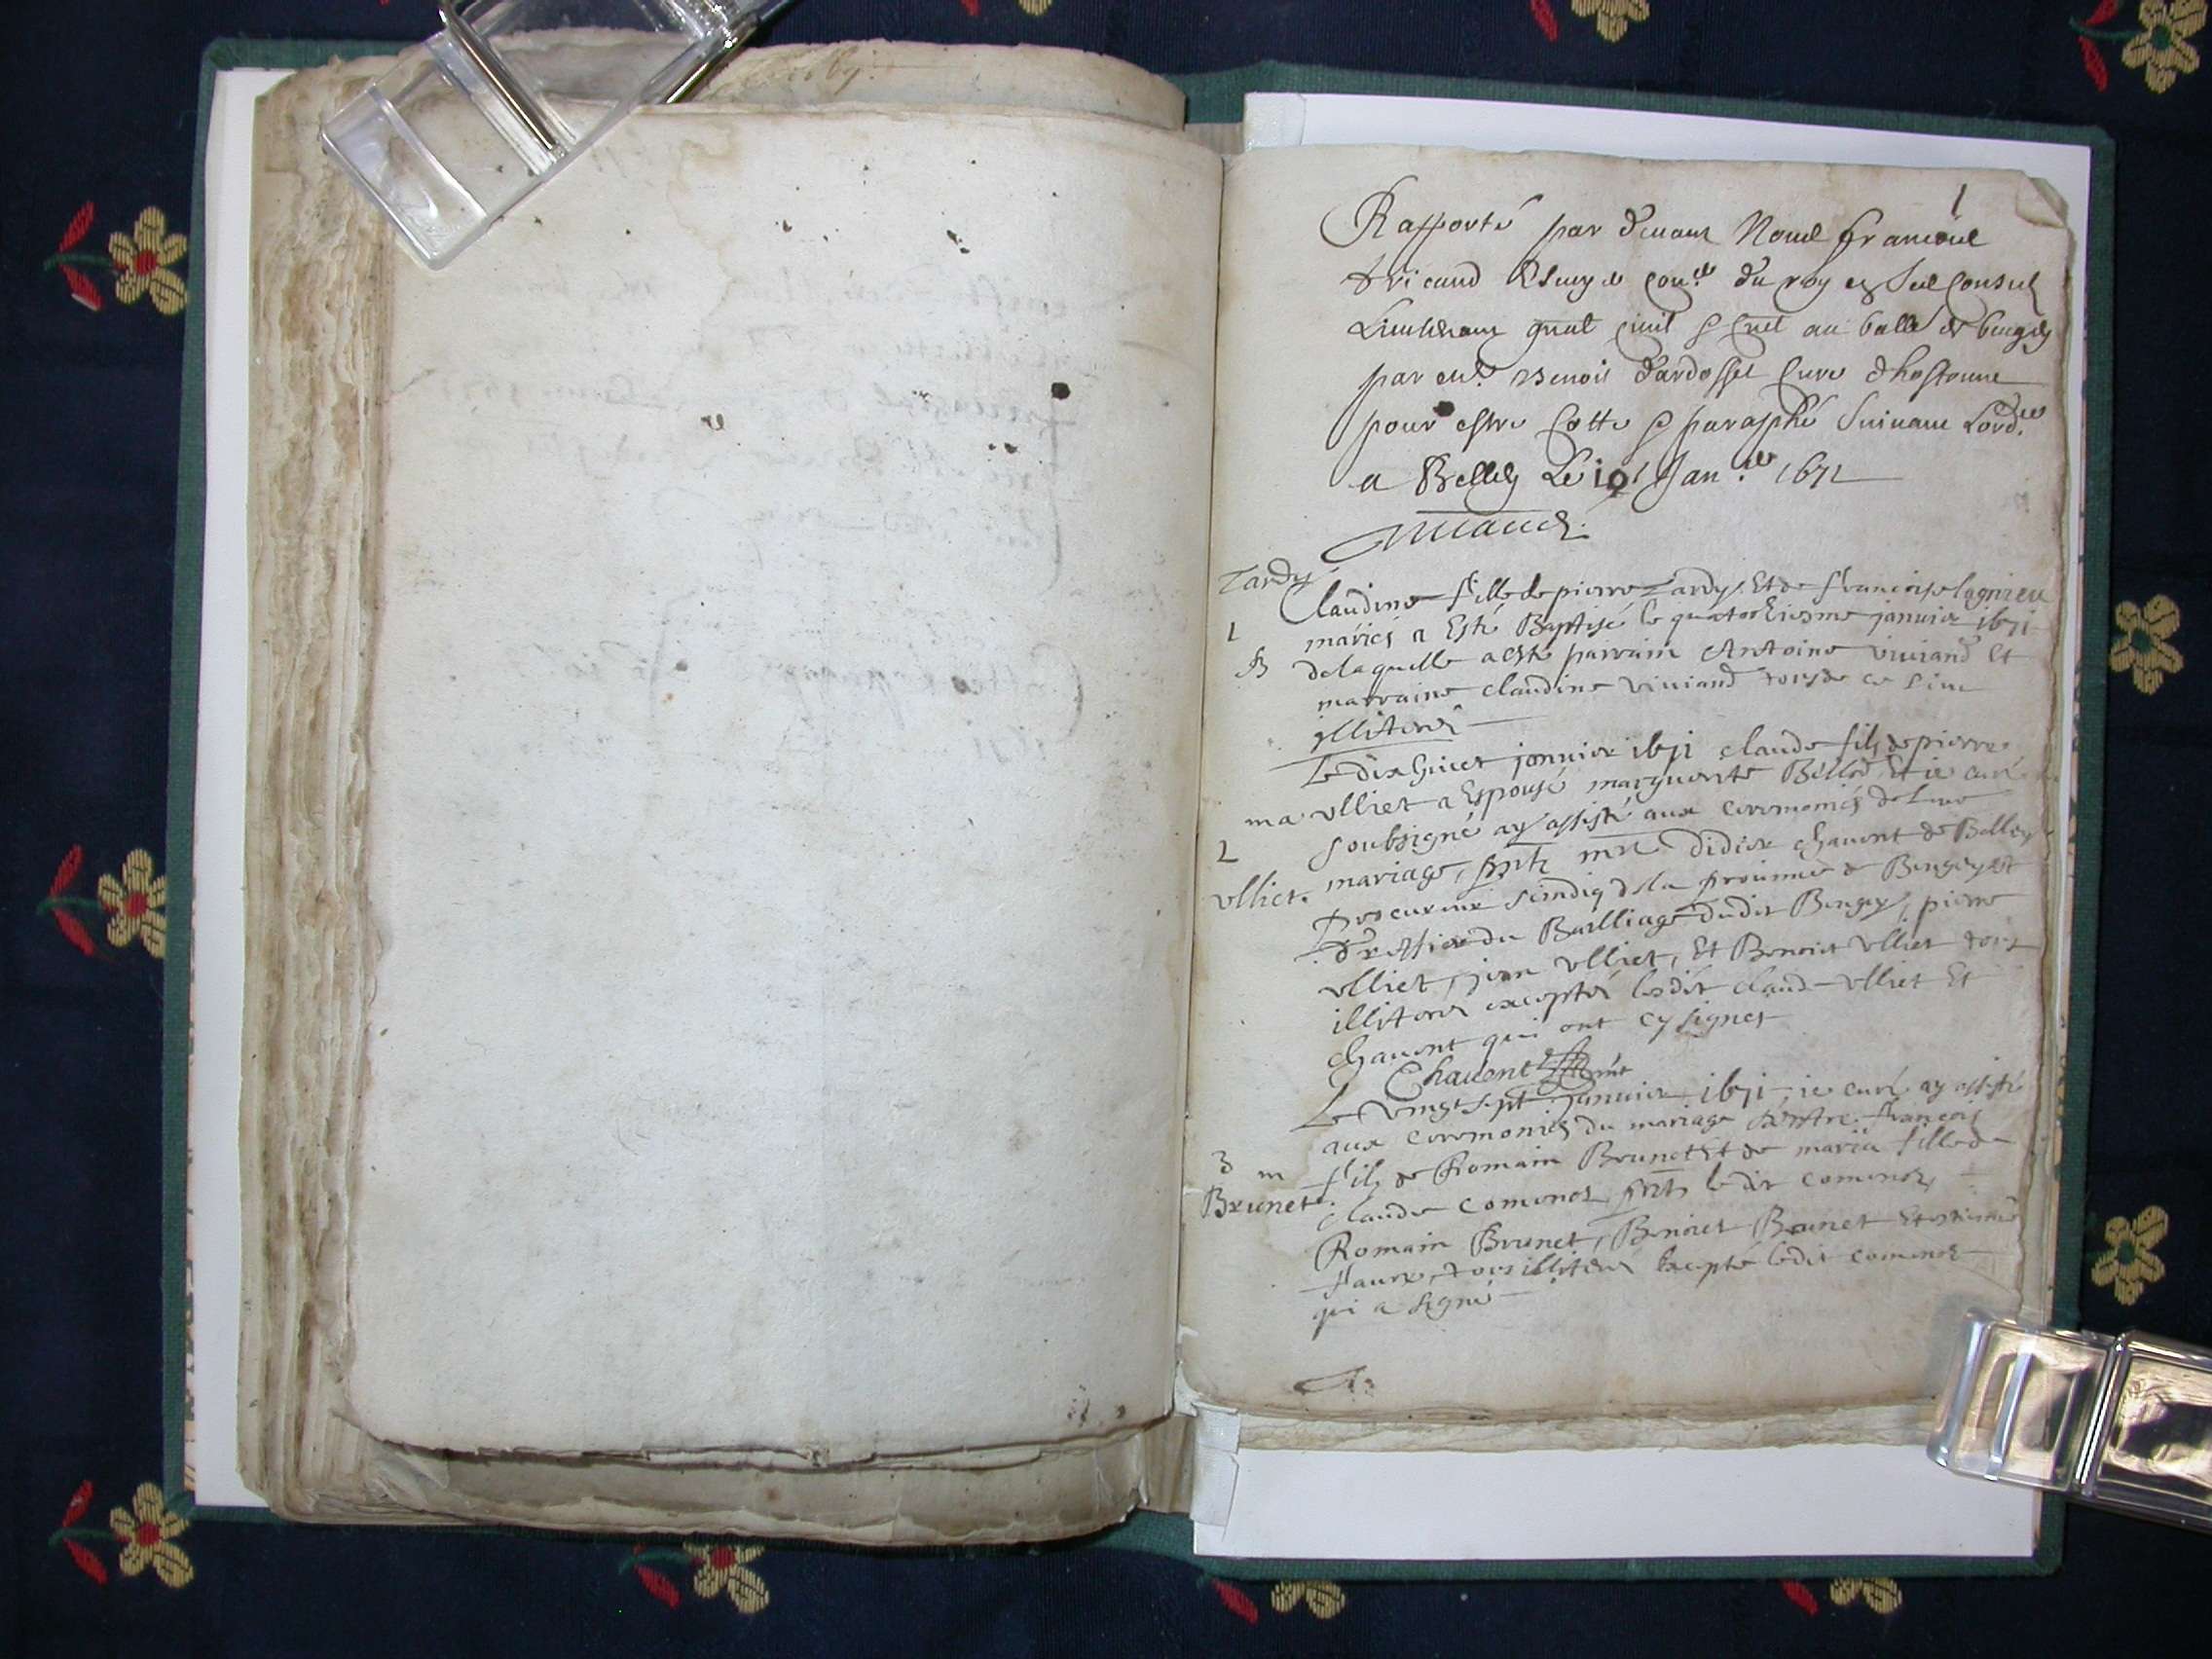 1
Rapporté par devant Nous francois
tricaud Escuyer con.er du roy et seul Consul
Lieutenant gnal civil & crel au balle de bugey
par m.re Benoit dardossel Curé dhostonne
pour estre Cotté & paraphé suivant Lord.ce
a Belley Le 10 Jan.er 1671
Tardy
Claudine fille de pierre Tardy Et de francoise lagnieu
1
mariés a Esté Baptisé le quatorziesme janvier 1671
B
de laquelle a esté parrain Antoine viviand et
marraine claudine viviand tous de ce lieu
jlliterés
Le dixhuict janvier 1671 claude fils de pierre
ma
ulliet a Espousé marguerite Bellod, Et ie curé
2
soubsigné ay assisté aux ceremonies de leur
ulliet.
mariage, pnts mre didier chavent de Belley
procureur sindiq de la province de Bugey et
greffier du Bailliage dudit Bugey, pierre
ulliet, jean ulliet, Et Benoict ulliet tous
illiterés exceptés lesdit claude ulliet Et
chavent qui ont cy signés
Chavent
Le vingt sept janvier 1671 ie curé ay assisté
aux ceremonies du mariage dentre francois
3 m
fils de Romain Brunet Et de maria fille de
Brunet
claude comenos pnts ledit comenos,
Romain Brunet, Benoict Brunet Et estienne
faure, tous illiterés Excepté ledit comenos
qui a signé